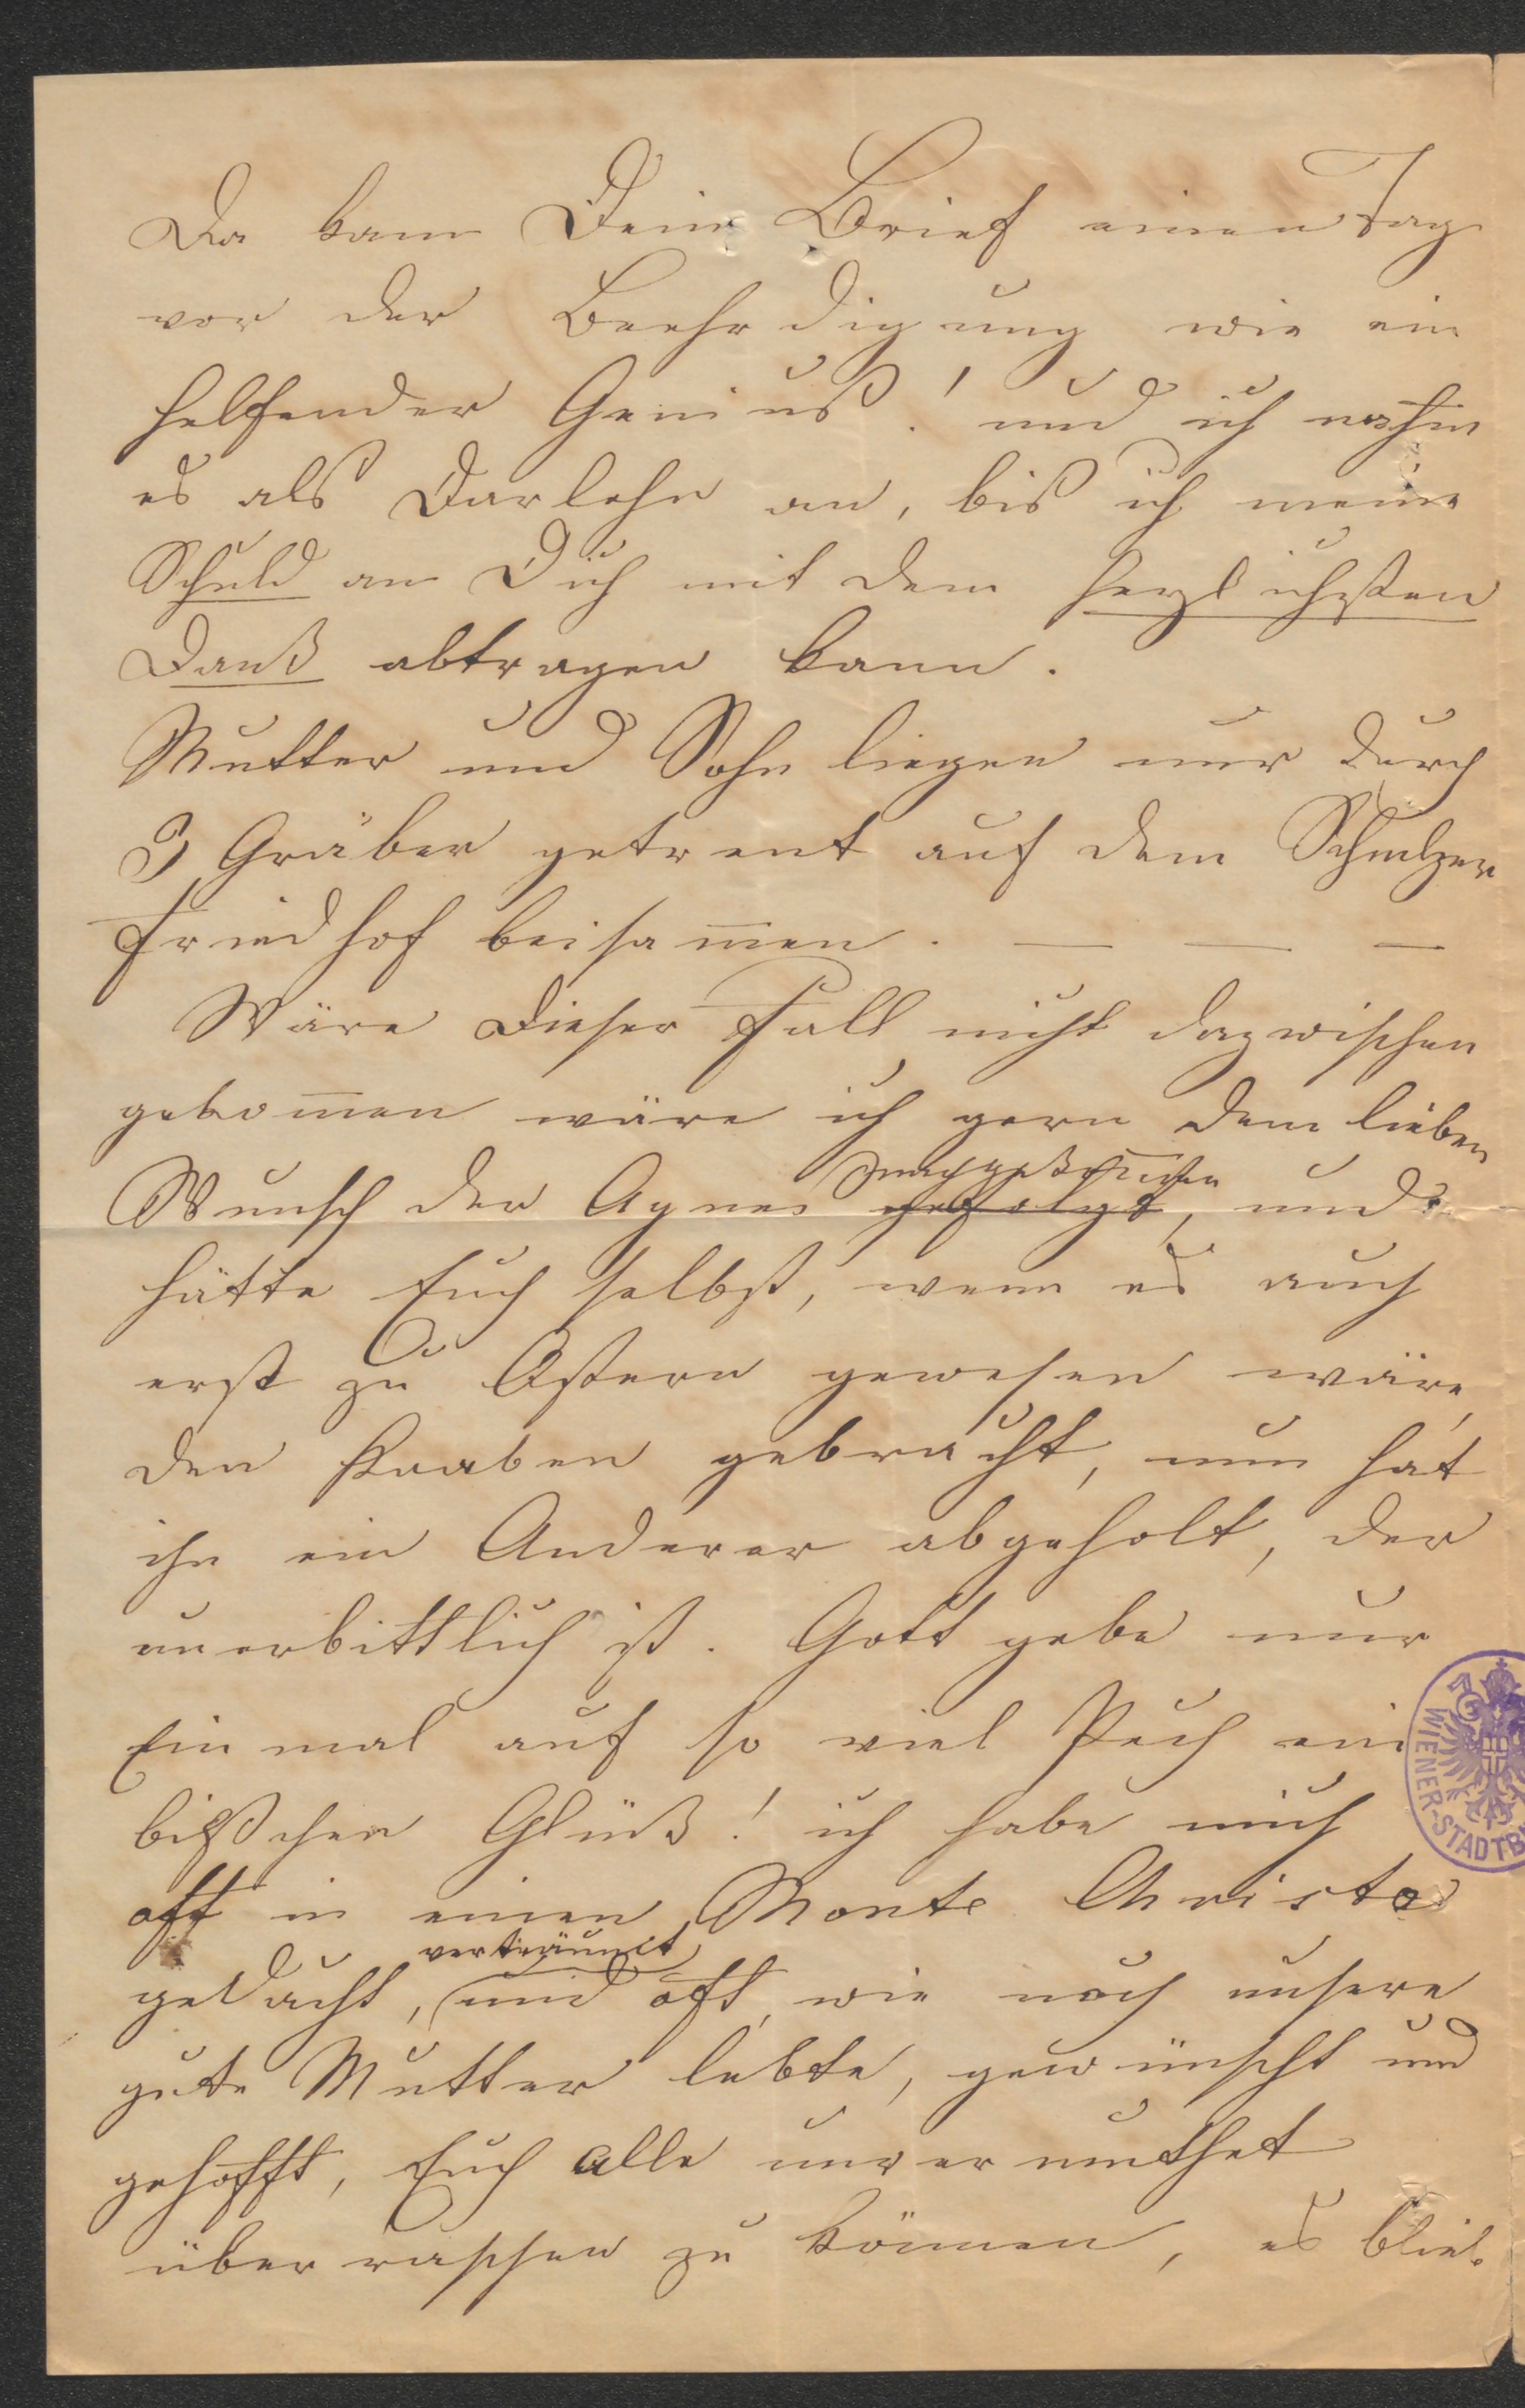 Da kam Dein Brief einen Tag
vor der Beehrdigung wie ein
helfender Genius! und ich nahm
es als Darlehn an, bis ich meine
Schuld an Dich mit dem herzlichsten
Dank abtragen kann.
Mutter und Sohn liegen nur durch
3 Gräber getrent auf dem Schmelzer
Friedhof beisam̅en. — — —
Wäre dieser Fall nicht dazwischen
gekom̅en wäre ich gern dem lieben
Wunsch der Agnes gefolgt, und
hätte Euch selbst, wenn es auch
erst zu Ostern gewesen wäre,
den Knaben gebracht, nun hat
ihn ein Anderer abgeholt, der
unerbittlich ist. Gott gebe nur
Einmal auf so viel Pech ein
bißchen Glück! ich habe mich
oft in einen Monte Christo
verträumt
gedacht, und oft, wie noch unsere
gute Mutter lebte, gewünscht und
gehofft, Euch alle unvermuthet
überraschen zu können, es blieb
WIENER-STADTB